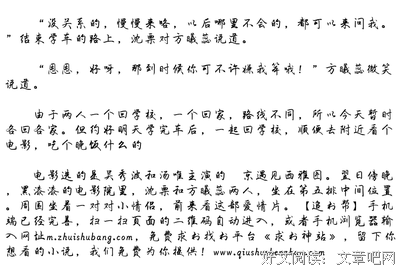 “没关系的，慢慢来咯，以后哪里不会的，都可以来问我。
”结束学车的路上，沈栗对方曦蕊说道。
“恩恩，好呀，那到时候你可不许嫌我笨哦！”方曦蕊微笑
说道。
由于两人一个回学校，一个回家，路线不同，所以今天暂时
各回各家。但约好明天学完车后，一起回学校，顺便去附近看个
电影，吃个晚饭什么的
电影选的是吴秀波和汤唯主演的　京遇见西雅图。翌日傍晚
，黑漆漆的电影院里，沈栗和方曦蕊两人，坐在第五排中间位置
。周围坐着一对对小情侣，前来看这部爱情片。【追书帮】手机
端已经完善，扫一扫页面的二维码自动进入，或者手机浏览器输
入网址m.zhuishubang.com，免费求书找书平台《求书神站》，留下你
想看的小说，我们免费为你提供！www.qiushuzhenzhan.com
好文阅读-文章吧网